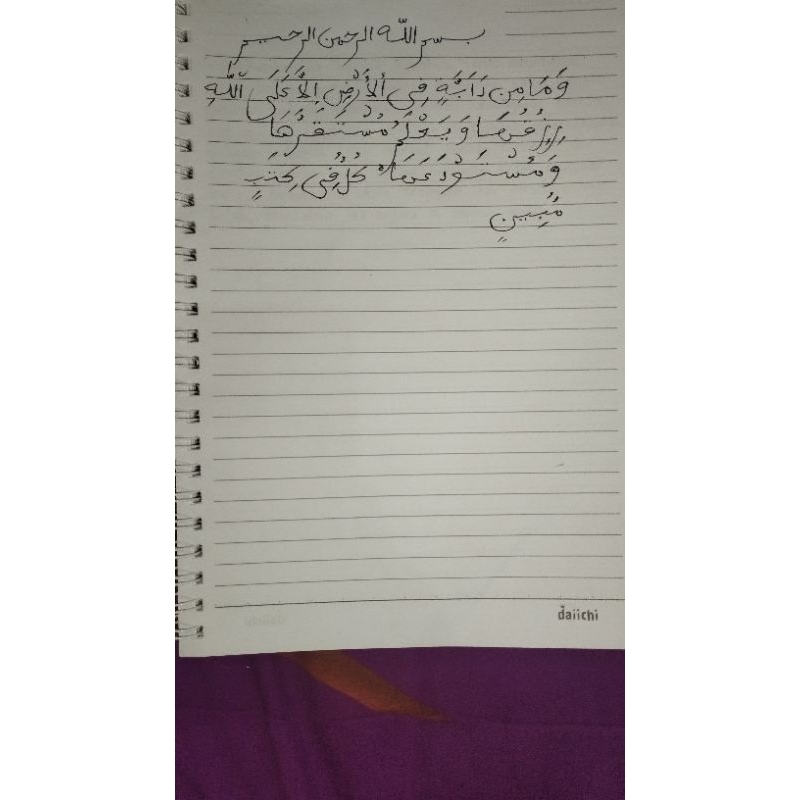 بسم الله الرحمن الرحيم
وَمَا مِن دَابَّةٍ فِي ٱلْأَرْضِ إِلَّا عَلَى ٱللَّهِ
رِزْقُهَا وَيَعْلَمُ مُسْتَقَرَّهَا
وَمُسْتَوْدَعَهَا ۚ كُلٌّ فِي كِتَٰبٍ
مُّبِينٍ
daiichi